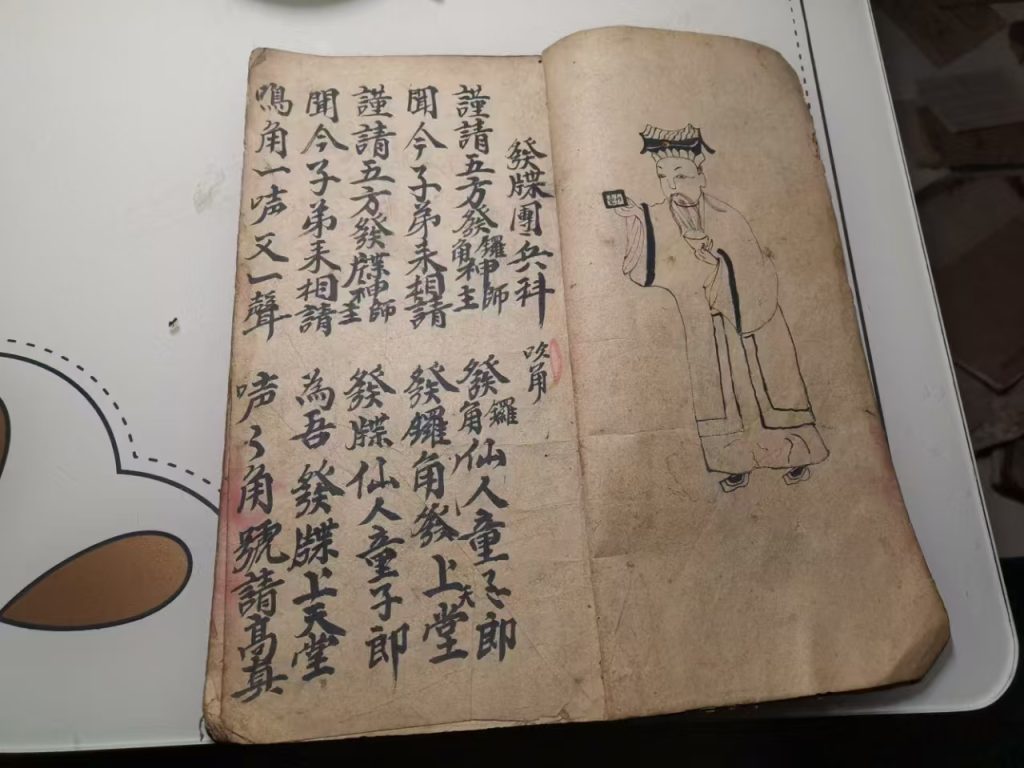 發牒團兵科 吹角
謹請五方發鑼角神師主 發鑼角仙人童子郎
聞今子弟来相請 發鑼角發上天堂
謹請五方發牒神師主 發牒仙人童子郎
聞今子弟来相請 為吾發牒上天堂
鳴角一声又一聲 声〻角號請高真